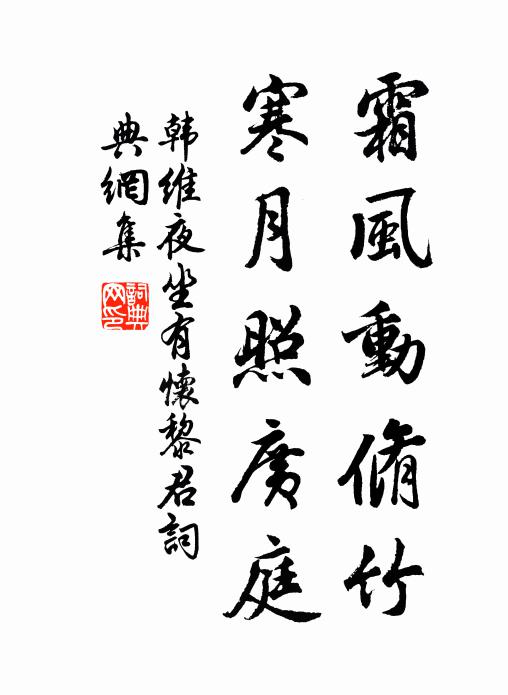 霜風動脩竹
寒月照廣庭
韩維夜坐有懷黎君詞
典網集
詞典
网印